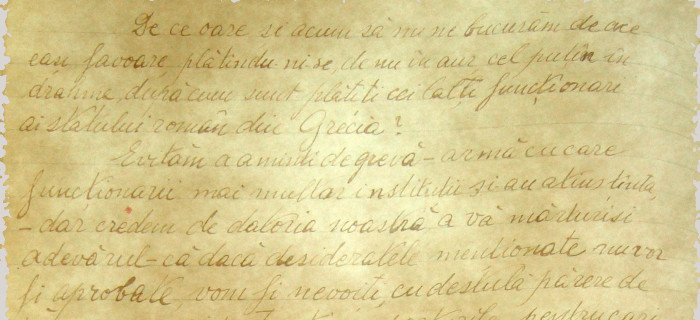 De ce oare și acum să nu ne bucurăm de ace
eași favoare, plătindu-ni-se, de nu în aur cel puțin în
drahme, după cum sunt plătiți ceilalți funcționari
ai statului român din Grecia?
Evităm a aminti de grevă - armă cu care
funcționarii mai multor instituții și-au atins ținta,
- dar credem de datoria noastră a vă mărturisi
adevărul - că dacă desideratele menționate nu vor
fi aprobate, vom fi nevoiți, cu destulă părere de
pentru cari